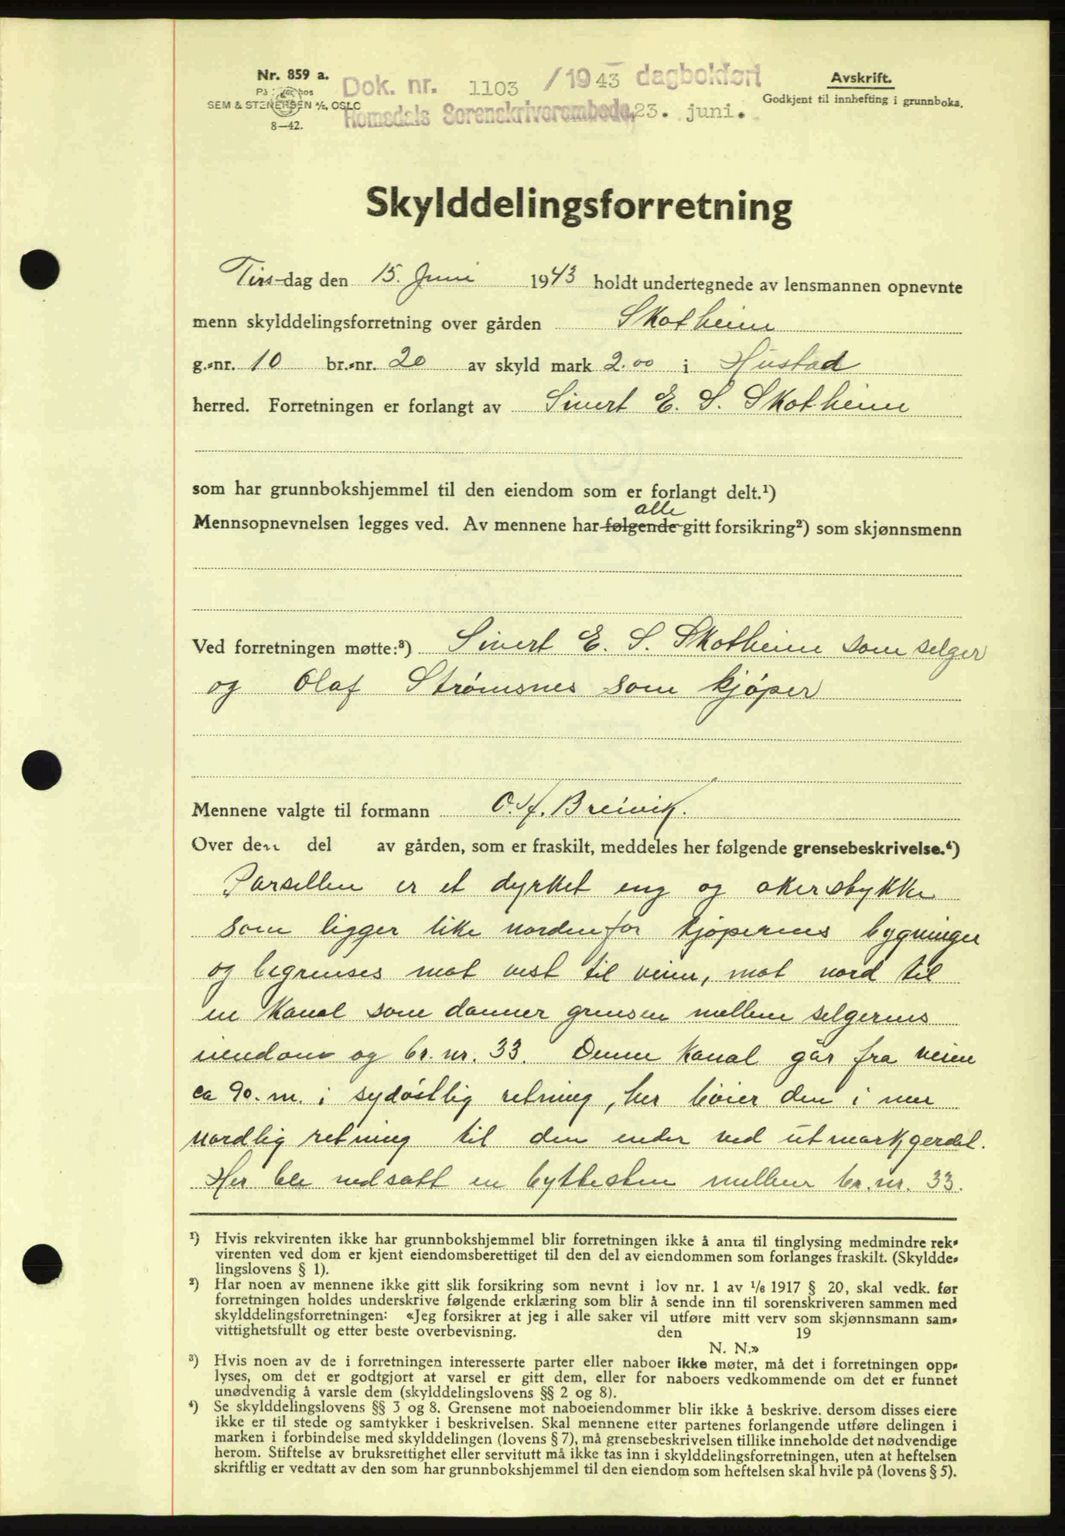 Nr. 859 a.
SEM & STENERSEN A/S, OSLO
8—42.
Dok. nr. 1103 /1943 dagbokført
Romsdals Sorenskriverembede, 23. juni.
Avskrift.
Godkjent til innhefting i grunnboka.
Skylddelingsforretning
Tirs-dag den 15. Juni 1943 holdt undertegnede av lensmannen opnevnte
menn skylddelingsforretning over gården Skotheim
g.-nr. 10 br.-nr. 20 av skyld mark 2.00 i Hustad
herred. Forretningen er forlangt av Sivert E. S. Skotheim
som har grunnbokshjemmel til den eiendom som er forlangt delt.¹)
alle
Mennsopnevnelsen legges ved. Av mennene har følgende gitt forsikring²) som skjønnsmenn
Ved forretningen møtte:³) Sivert E. S. Skotheim som selger
og Olaf Strømsnes som kjøper
Mennene valgte til formann O. H. Breivik.
Over den del av gården, som er fraskilt, meddeles her følgende grensebeskrivelse.⁴)
Parsellen er et dyrket eng og akerstykke
som ligger like nordenfor kjøperens bygninger
og begrenses mot vest til veien, mot nord til
en kanal som danner grensen mellem selgerens
eiendom og br. nr. 33. Denne kanal går fra veien
ca 90. m. i sydøstlig retning, her bøier den i mer
nordlig retning til den ender ved utmarkgjerdet.
Her ble nedsatt en byttesten mellem br. nr. 33.
¹) Hvis rekvirenten ikke har grunnbokshjemmel blir forretningen ikke å anta til tinglysing medmindre rek-
virenten ved dom er kjent eiendomsberettiget til den del av eiendommen som forlanges fraskilt. (Skyldde-
lingslovens § 1).
²) Har noen av mennene ikke gitt slik forsikring som nevnt i lov nr. 1 av 1/6 1917 § 20, skal vedk. før
forretningen holdes underskrive følgende erklæring som blir å sende inn til sorenskriveren sammen med
skylddelingsforretningen: «Jeg forsikrer at jeg i alle saker vil utføre mitt verv som skjønnsmann sam-
vittighetsfullt og etter beste overbevisning. den 19
N. N.»
³) Hvis noen av de i forretningen interesserte parter eller naboer ikke møter, må det i forretningen opp-
lyses, om det er godtgjort at varsel er gitt dem, eller for naboers vedkommende om det er funnet
unødvendig å varsle dem (skylddelingslovens §§ 2 og 8).
⁴) Se skylddelingslovens §§ 3 og 8. Grensene mot naboeiendommer blir ikke å beskrive, dersom disses eiere
ikke er til stede og samtykker i beskrivelsen. Skal mennene etter partenes forlangende utføre delingen i
marken i forbindelse med skylddelingen (lovens § 7), må grensebeskrivelsen tillike inneholde det nødvendige
herom. Stiftelse av bruksrettighet eller servitutt må ikke tas inn i skylddelingsforretningen, uten at heftelsen
skriftlig er vedtatt av den som har grunnbokshjemmel til den eiendom som heftelsen skal hvile på (lovens § 5).